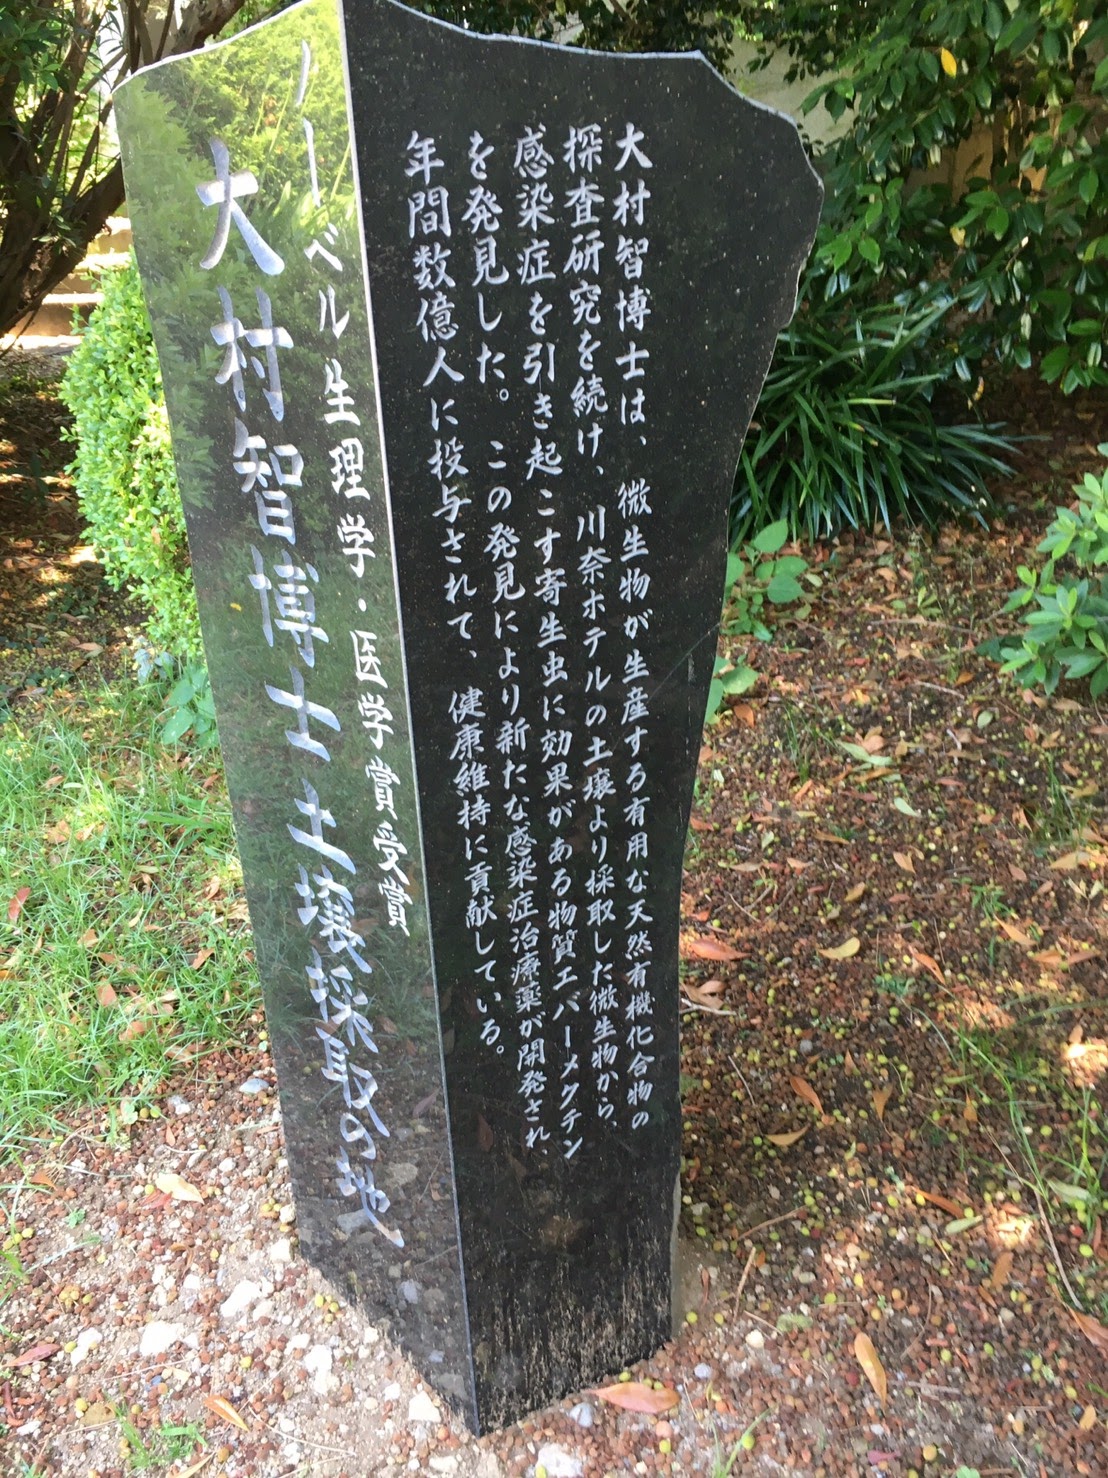 ノーベル生理学・医学賞受賞
大村智博士土壌採取の地
大村智博士は、微生物が生産する有用な天然有機化合物の
探査研究を続け、川奈ホテルの土壌より採取した微生物から、
感染症を引き起こす寄生虫に効果がある物質エバーメクチン
を発見した。この発見により新たな感染症治療薬が開発され、
年間数億人に投与されて、健康維持に貢献している。